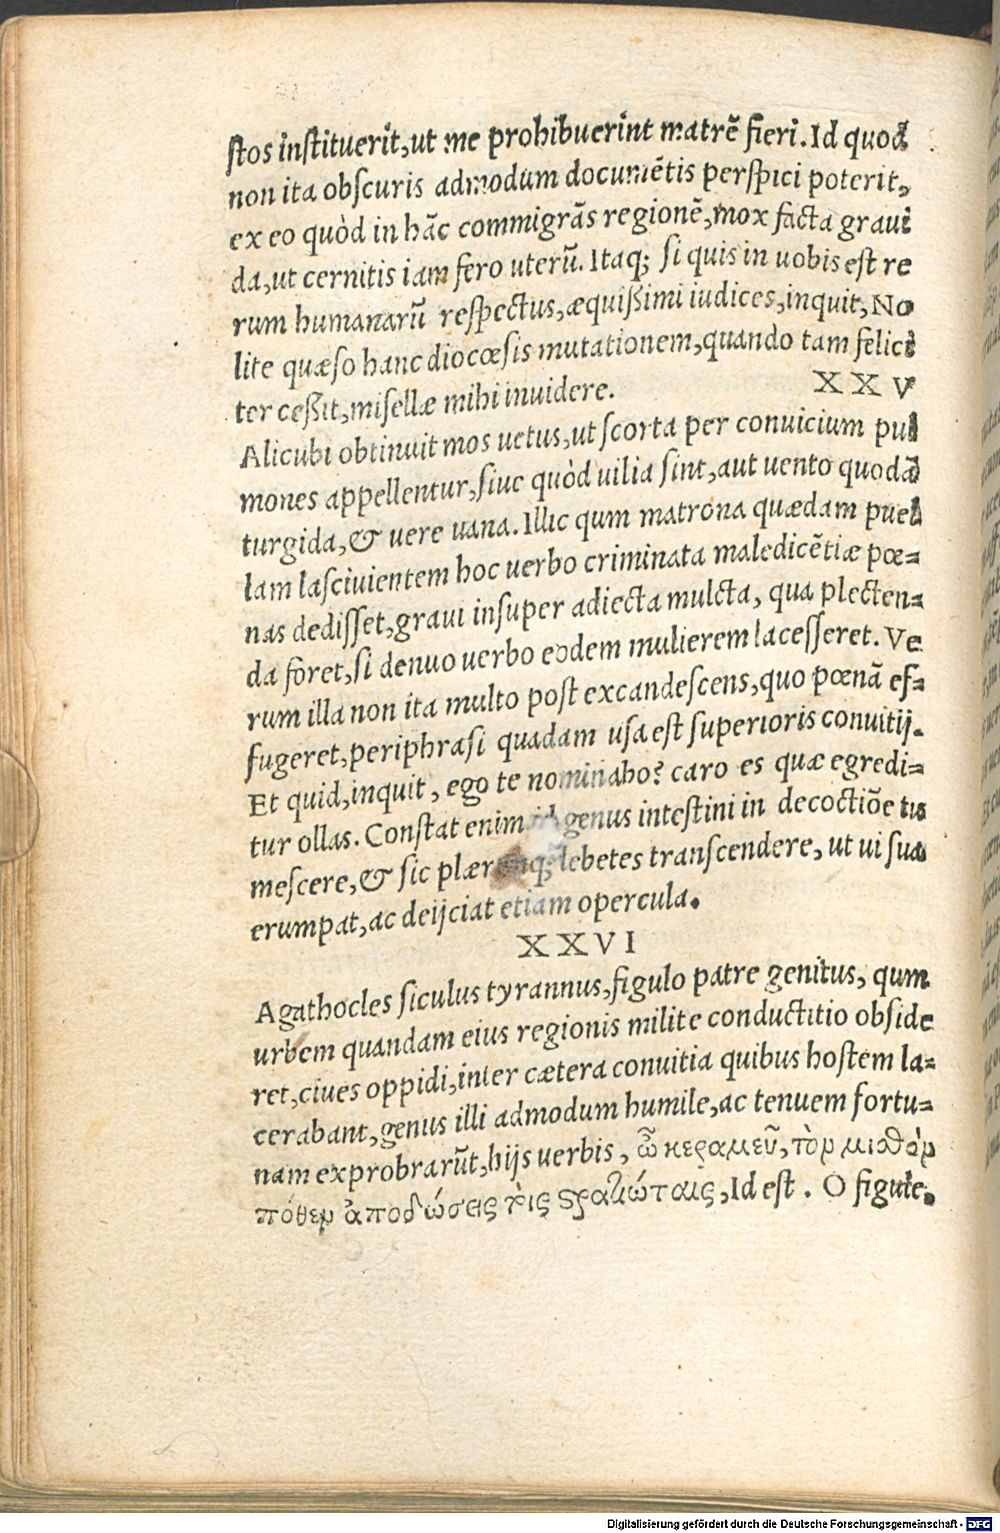 ſtos inſtituerit,ut me prohibuerint matrẽ fieri.Id quod
non ita obſcuris admodum documẽtis perſpici poterit,
ex eo quòd in hãc commigrãs regionẽ,mox facta graui
da,ut cernitis iam fero uterũ. Itaq; ſi quis in uobis eſt re
rum humanarũ reſpectus,æquißimi iudices,inquit,No
lite quæſo hanc diocœſis mutationem,quando tam felici
ter ceßit,miſellæ mihi inuidere.
XXV
Alicubi obtinuit mos uetus,ut ſcorta per conuicium pul
mones appellentur,ſiue quòd uilia ſint,aut uento quodã
turgida,& uere uana. Illic qum matrona quædam puel
lam laſciuientem hoc uerbo criminata maledicẽtiæ pœ=
nas dediſſet,graui inſuper adiecta mulcta, qua plecten=
da foret,ſi denuo uerbo eodem mulierem laceſſeret. Ve
rum illa non ita multo poſt excandeſcens,quo pœnã ef=
fugeret,periphraſi quadam uſa eſt ſuperioris conuitij.
Et quid,inquit, ego te nominabo? caro es quæ egredi=
tur ollas. Conſtat enim id genus inteſtini in decoctiõe tu
meſcere,& ſic plærunq; lebetes tranſcendere, ut ui ſua
erumpat,ac deijciat etiam opercula.
XXVI
Agathocles ſiculus tyrannus,figulo patre genitus, qum
urbem quandam eius regionis milite conductitio obſide
ret,ciues oppidi,inter cætera conuitia quibus hoſtem la=
cerabant,genus illi admodum humile,ac tenuem fortu=
nam exprobrarũt,hijs uerbis, ὦ κεραμεῦ, τὸν μισθὸν
πόθεν ἀποδώσεις τοῖς στρατιώταις, Id eſt. O figule,
Digitalisierung gefördert durch die Deutsche Forschungsgemeinschaft - DFG